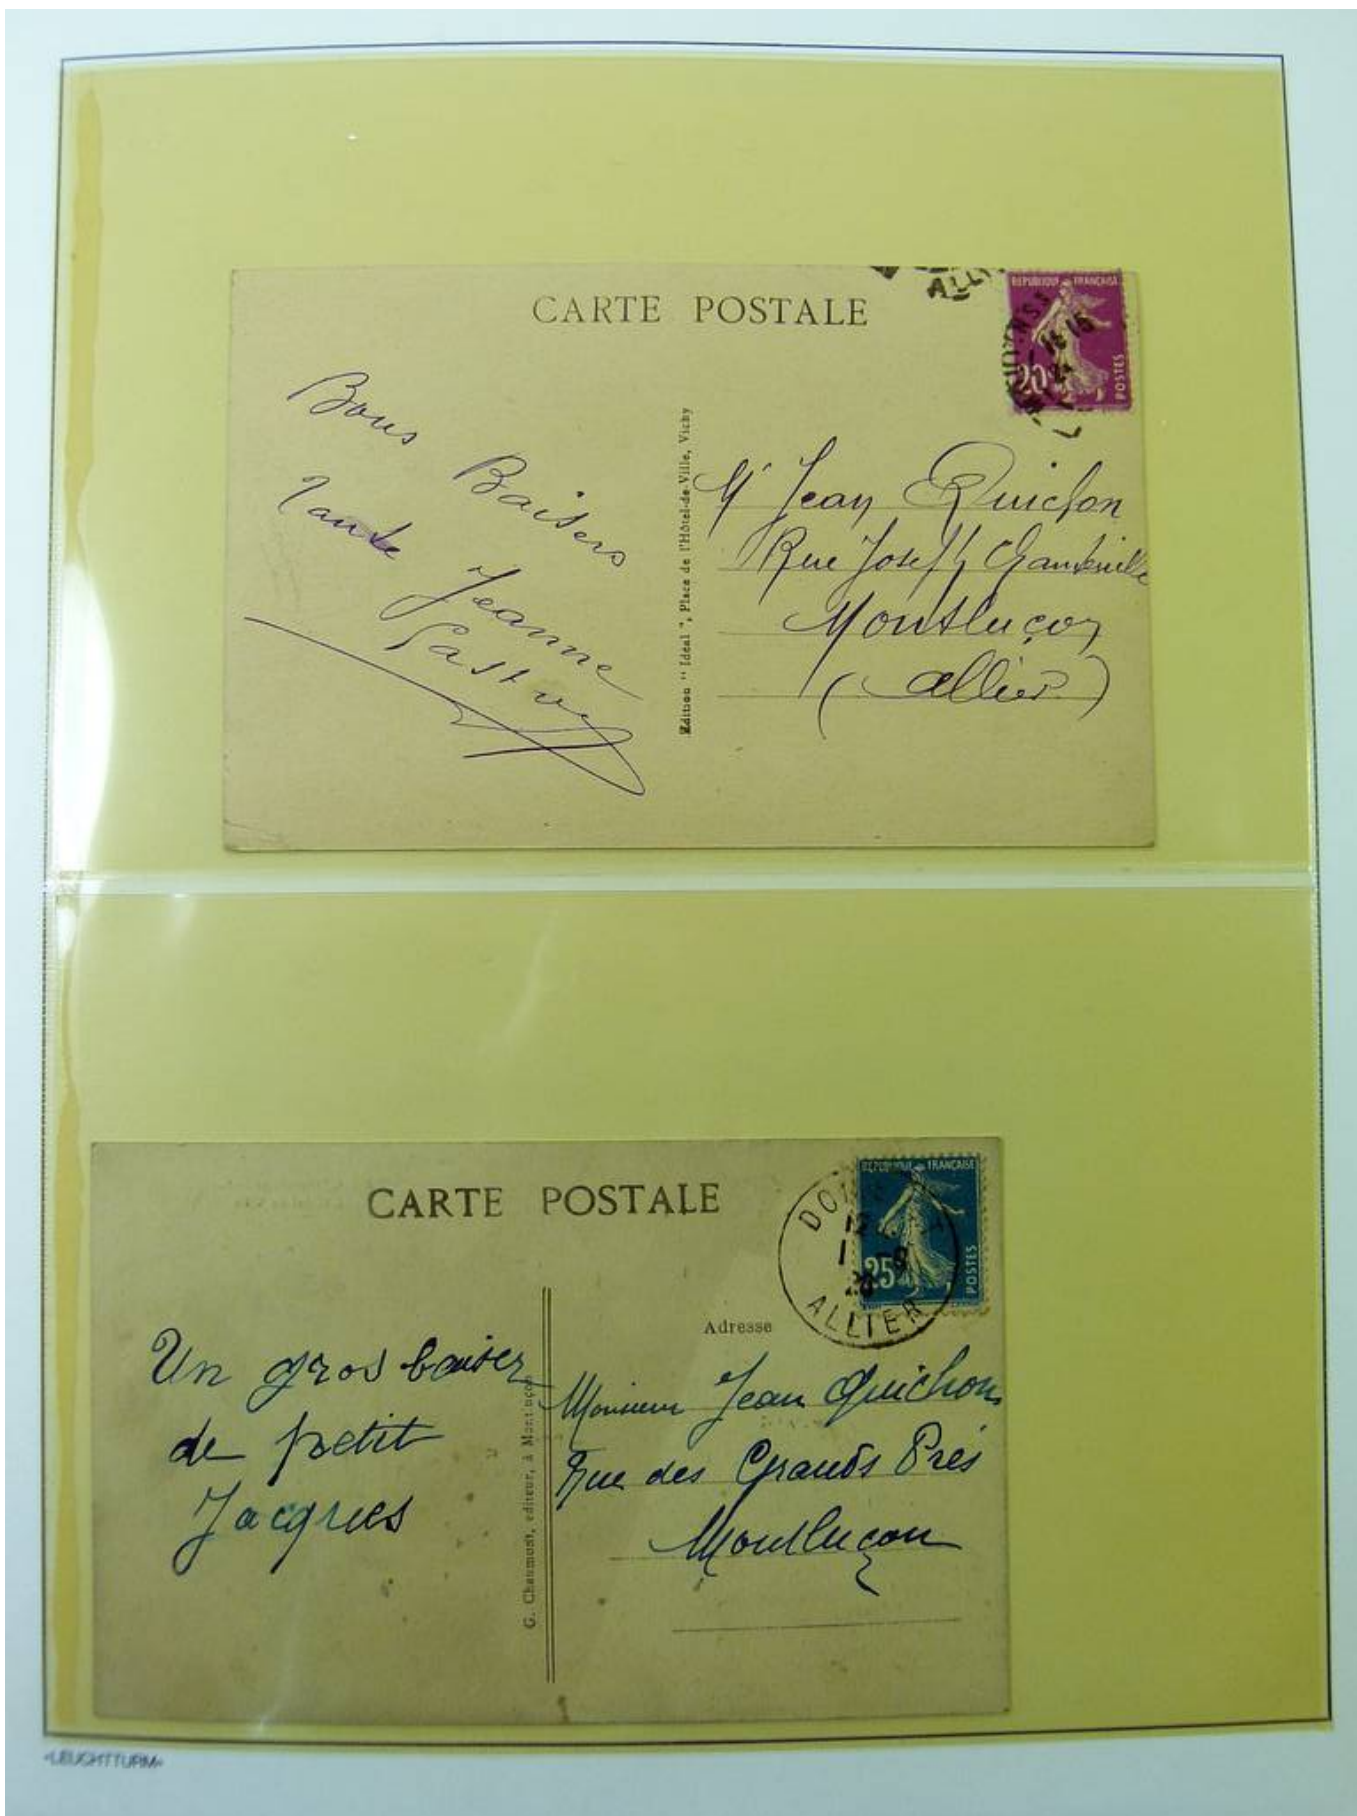 CARTE POSTALE
ALLI
REPUBLIQUE FRANÇAISE
POSTES
Bons Baisers
Tante Jeanne
Edition "Ideal", Place de l'Hôtel-de-Ville, Vichy
Mr Jean Quichon
Rue Joseph
Montluçon
(Allier)
CARTE POSTALE
REPUBLIQUE FRANÇAISE
25
POSTES
ALLIER
Adresse
Un gros baiser
de petit
Jacques
G. Chaumont, editeur, à Montluçon
Monsieur Jean Quichon
Rue des Grands Prés
Montluçon
LEUCHTTURM